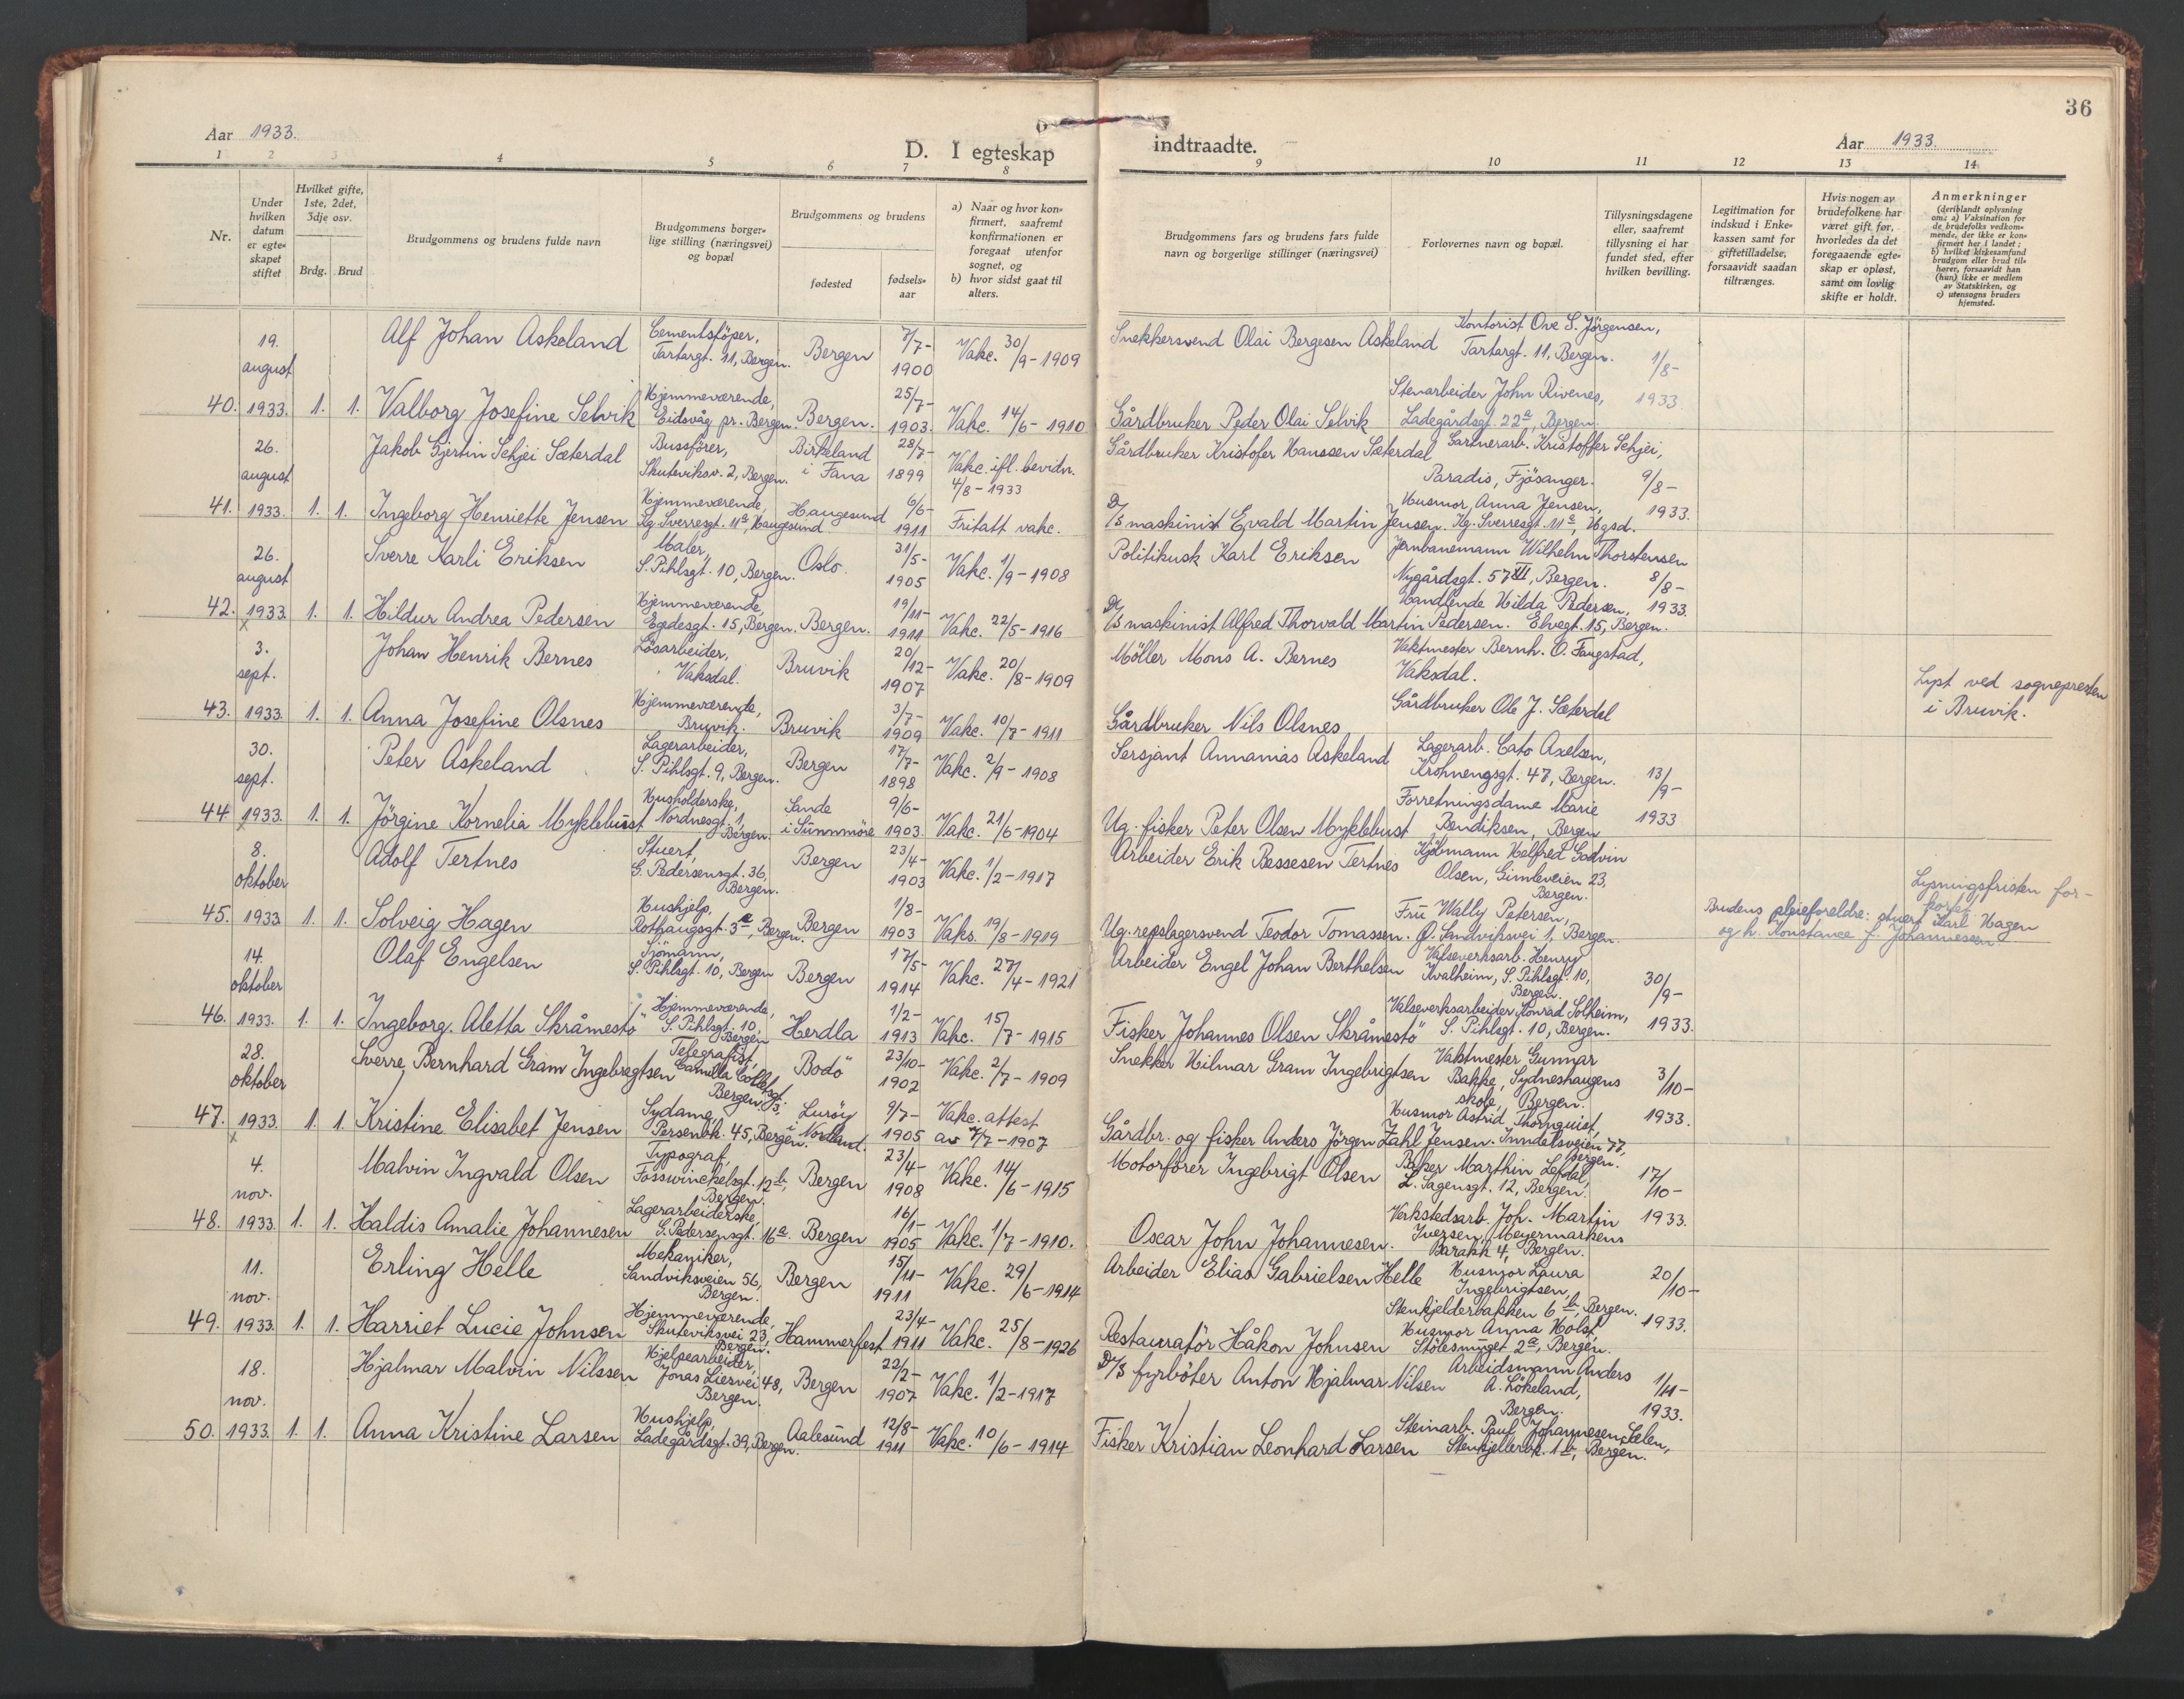 36
Aar 1933.
D. I egteskap
indtraadte.
Aar 1933.
1 2 3 4 5 6 7 8 9 10 11 12 13 14
Nr.
Under hvilken datum er egteskapet stiftet
Hvilket gifte, 1ste, 2det, 3dje osv.
Brdg. Brud
Brudgommens og brudens fulde navn
Brudgommens borgerlige stilling (næringsvei) og bopæl
Brudgommens og brudens
fødested
fødselsaar
a) Naar og hvor konfirmert, saafremt konfirmationen er foregaat utenfor sognet, og
b) hvor sidst gaat til alters.
Brudgommens fars og brudens fars fulde navn og borgerlige stillinger (næringsvei)
Forlovernes navn og bopæl.
Tillysningsdagene eller, saafremt tillysning ei har fundet sted, efter hvilken bevilling.
Legitimation for indskud i Enkekassen samt for giftetilladelse, forsaavidt saadan tiltrænges.
Hvis nogen av brudefolkene har været gift før, hvorledes da det foregaaende egteskap er opløst, samt om lovlig skifte er holdt.
Anmerkninger
(deriblandt oplysning om: a) Vaksination for de brudefolks vedkommende, der ikke er konfirmert her i landet; b) hvilket kirkesamfund brudgom eller brud tilhører, forsaavidt han (hun) ikke er medlem av Statskirken, og c) utensogns bruders hjemsted.
40. 19. august 1933. 1. 1.
Alf Johan Askeland Cementstöper, Tartargt. 11, Bergen. Bergen 7/7- 1900 Vakc. 30/9-1909 Snekkersvend Olai Bergesen Askeland Kontorist Ove S. Jörgensen, Tartargt. 11, Bergen. 1/8- 1933
Valborg Josefine Selvik Hjemmeværende, Eidsvåg pr. Bergen. Bergen. 25/7- 1903. Vakc. 14/6-1910 Gårdbruker Peder Olai Selvik Stenarbeider John Rivenes, Ladegårdsgt. 22a, Bergen.
41. 26. august 1933. 1. 1.
Jakob Gjertin Sehjei Sæterdal Bussförer, Skuteviksv. 2, Bergen. Birkeland i Fana 28/7- 1899 Vakc. ifl. bevidn. 4/8-1933 Gårdbruker Kristofer Hanssen Sæterdal Gartnerarb. Kristoffer Sehjei, Paradis, Fjösanger. 9/8- 1933.
Ingeborg Henriette Jensen Hjemmeværende, Kg. Sverresgt. 11a, Haugesund. Haugesund 6/6- 1911 Fritatt vakc. D/S maskinist Evald Martin Jensen. Husmor Anna Jensen, Kg. Sverresgt. 11a, Hgsd.
42. 26. august 1933. x 1. 1.
Sverre Karli Eriksen Maler, S. Pihlsgt. 10, Bergen. Oslo. 31/5- 1905 Vakc. 1/9-1908 Politikusk Karl Eriksen Jernbanemann Wilhelm Thorstensen Nygårdsgt. 57 III, Bergen. 8/8- 1933.
Hildur Andrea Pedersen Hjemmeværende, Egedesgt. 15, Bergen. Bergen. 19/11- 1911 Vakc. 22/5-1916 D/S maskinist Alfred Thorvald Martin Pedersen. Handlende Hilda Pedersen, Elvegt. 15, Bergen.
43. 3. sept. 1933. 1. 1.
Johan Henrik Bernes Lösarbeider, Vaksdal. Bruvik 20/12- 1907 Vakc. 20/8-1909 Möller Mons A. Bernes Vaktmester Bernh. O. Faugstad, Vaksdal.
Lyst ved sognepresten i Bruvik.
Anna Josefine Olsnes Hjemmeværende, Bruvik. Bruvik 3/7- 1909 Vakc. 10/7-1911 Gårdbruker Nils Olsnes Gårdbruker Ole J. Sæterdal
44. 30. sept. 1933. x 1. 1.
Peter Askeland Lagerarbeider, S. Pihlsgt. 9, Bergen. Bergen 17/7- 1898 Vakc. 2/9-1908 Sersjant Annanias Askeland Lagerarb. Cato Axelsen, Krohnengsgt. 47, Bergen. 13/9- 1933
Jörgine Kornelia Myklebust Husholderske, Nordnesgt. 1, Bergen. Sande i Sunnmöre 9/6- 1903. Vakc. 21/6-1904 Ug. fisker Peter Olsen Myklebust Forretningsdame Marie Bendiksen, Bergen
45. 8. oktober 1933 1. 1.
Adolf Tertnes Stuert, G. Pedersensgt. 36, Bergen. Bergen 23/4- 1903 Vakc. 1/2-1917 Arbeider Erik Bessesen Tertnes Kjöbmann Helfred Godvin Olsen, Gimleveien 23, Bergen.
Lysningsfristen forkortet
Solveig Hagen Hushjelp, Rothaugsgt. 3a, Bergen. Bergen 1/8- 1903 Vaks. 19/8-1919 Ug. repslagersvend Teodor Tomassen. Fru Wally Petersen, Ø. Sandviksvei 1, Bergen.
Brudens pleieforeldre: stuert Karl Hagen og h. Konstance f. Johannesen
46. 14. oktober 1933. 1. 1.
Olaf Engelsen Sjömann, S. Pihlsgt. 10, Bergen Bergen 17/5- 1914 Vakc. 27/4-1921 Arbeider Engel Johan Berthelsen Valseverksarb. Henry Kvalheim, S. Pihlsgt. 10, Bergen. 30/9- 1933.
Ingeborg Aletta Skråmestö Hjemmeværende, S. Pihlsgt. 10, Bergen Herdla 1/2- 1913 Vakc. 15/7-1915 Fisker Johannes Olsen Skråmestö Valseverksarbeider Konrad Solheim, S. Pihlsgt. 10, Bergen.
47. 28. oktober 1933. x 1. 1.
Sverre Bernhard Gram Ingebregtsen Telegrafist, Camilla Colletsgt. 3, Bergen. Bodö 23/10- 1902 Vakc. 2/7-1909 Snekker Hilmar Gram Ingebrigtsen Vaktmester Gunnar Bakke, Sydneshaugens skole, Bergen. 3/10- 1933.
Kristine Elisabet Jensen Sydame, Persenbk. 45, Bergen. Luröy i Nordland. 9/7- 1905 Vakc. attest av 7/7-1907 Gårdbr. og fisker Anders Jörgen Zahl Jensen. Husmor Astrid Thornquist, Inndalsveien 77, Bergen.
48. 4. nov. 1933. 1. 1.
Malvin Ingvald Olsen Typograf, Fosswinckelsgt. 12b, Bergen. Bergen 23/4- 1908 Vakc. 14/6-1915 Motorförer Ingebrigt Olsen Baker Marthin Lefdal, L. Sagensgt. 12, Bergen. 17/10- 1933.
Haldis Amalie Johannesen Lagerarbeiderske, G. Pedersensgt. 16a. Bergen 16/1- 1905 Vakc. 1/7-1910. Oscar John Johannesen. Verkstedsarb. Joh. Martin Iversen, Meyermarkens Barakk 4, Bergen.
49. 11. nov. 1933. 1. 1.
Erling Helle Mekaniker, Sandviksveien 56, Bergen. Bergen 15/11- 1911 Vakc. 29/6-1914 Arbeider Elias Gabrielsen Helle Husmor Laura Ingebrigtsen, Stenkjelderbakken 6b, Bergen. 20/10- 1933.
Harriet Lucie Johnsen Hjemmeværende, Skuteviksvei 23, Bergen. Hammerfest 23/4- 1911 Vakc. 25/8-1926 Restauratör Håkon Johnsen Husmor Anna Holst, Stölesmuget 2a, Bergen.
50. 18. nov. 1933. 1. 1.
Hjalmar Malvin Nilssen Hjelpearbeider, Jonas Liesvei 48, Bergen. Bergen 22/2- 1907 Vakc. 1/2-1917 D/S fyrböter Anton Hjalmar Nilsen Arbeidsmann Anders A. Lökeland, Bergen. 1/11- 1933.
Anna Kristine Larsen Hushjelp, Ladegårdsgt. 39, Bergen. Aalesund 12/8- 1911 Vakc. 10/6-1914 Fisker Kristian Leonhard Larsen Steinarb. Paul Johannesen Lelen, Stenkjellerbk. 1b, Bergen.